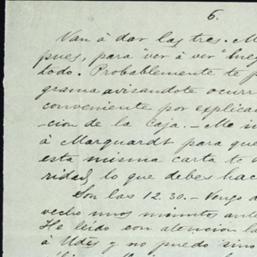 6.
Van á dar las tres. M
pues, para "ver á ver" lue
todo. Probablemente te p
grama avisandote ocurr
conveniente por explica
-cion de la caja. - Me
á Marquardt para que
esta misma carta te
vidas, lo que debes hac
Son las 12.30. - Vengo d
vecho unos minutos ant
He leido con atencion la
á Udes y no puedo sino